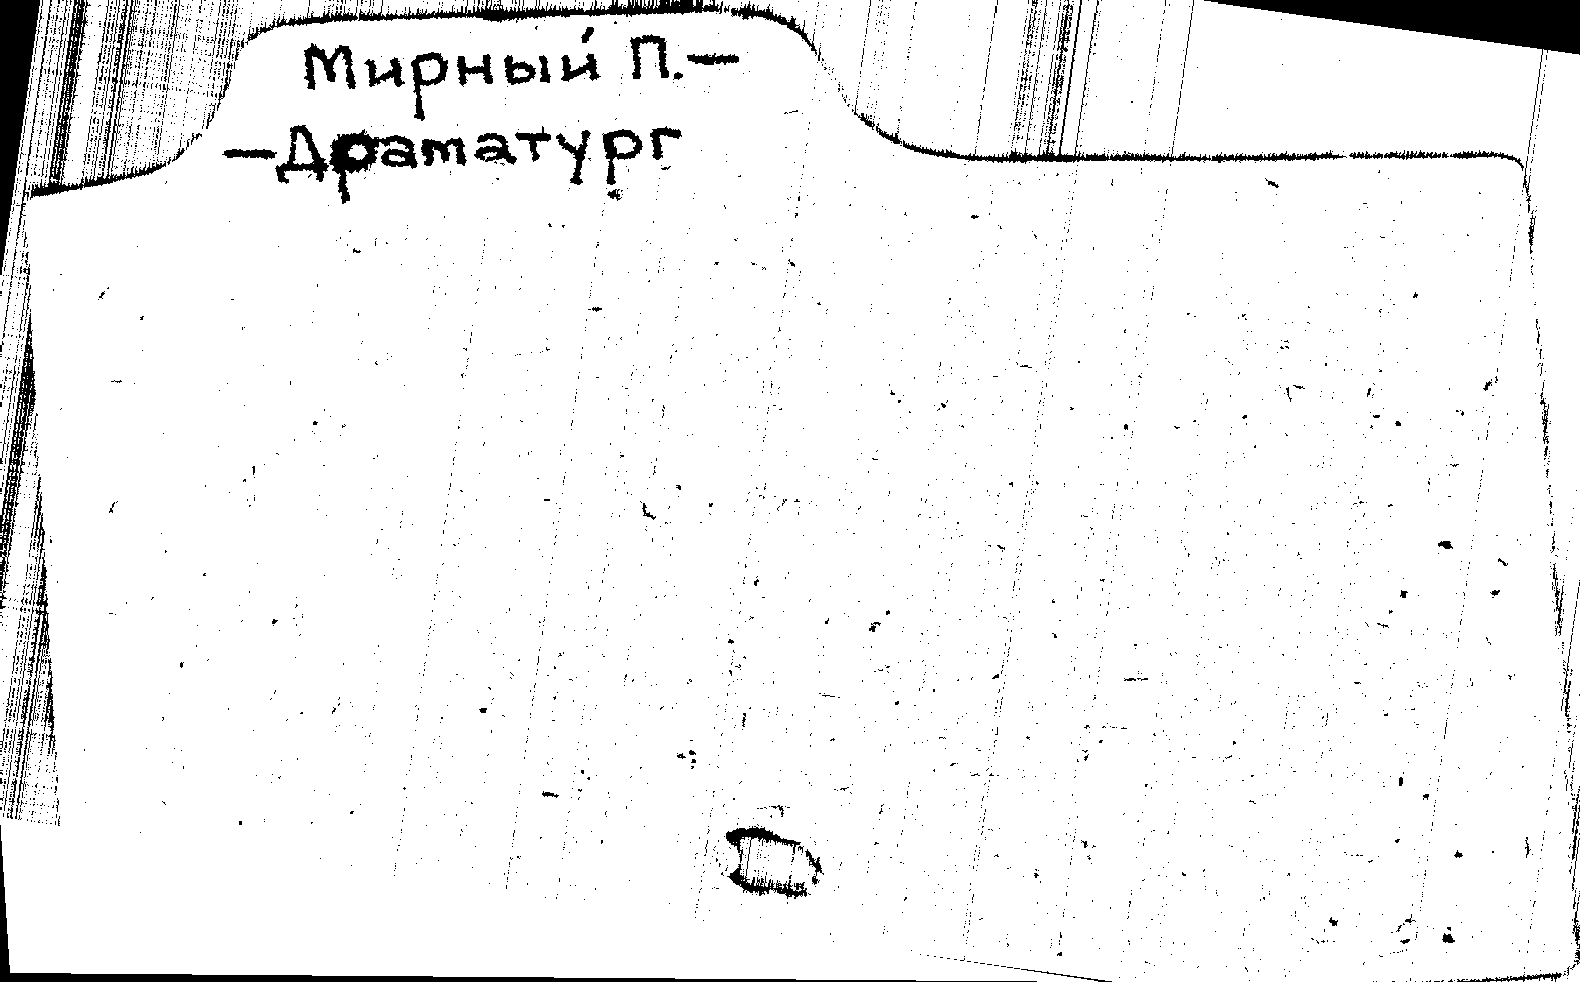 Мирный П.—
—Драматург